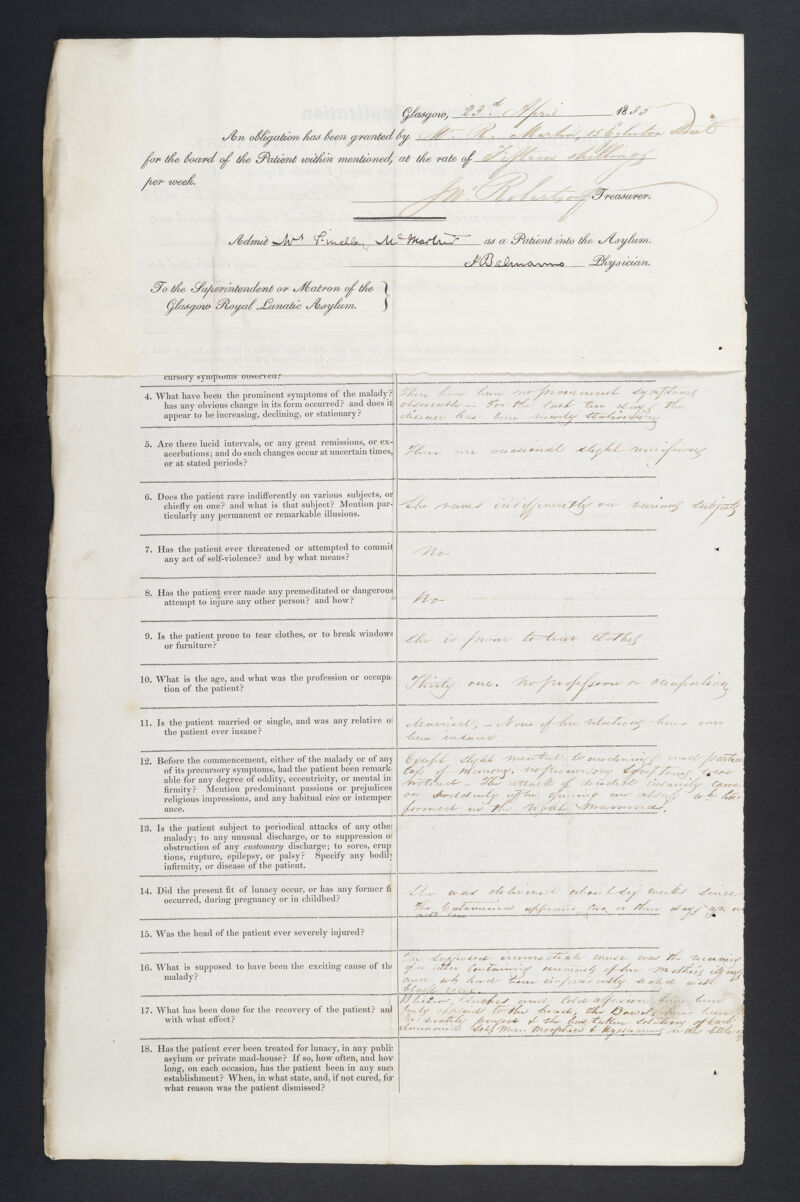 Glasgow, 23d. April 1835
An obligation has been granted by Mr. R. Martin, 15 Eglinton Street
for the board of the Patient within mentioned, at the rate of Fifteen shillings
per week.
Jno. Robertson Treasurer.
Admit Mrs McMartin as a Patient into the Asylum.
A Balmanno Physician.
To the Superintendent or Matron of the
Glasgow Royal Lunatic Asylum.
cursory symptoms observed?
4. What have been the prominent symptoms of the malady?
has any obvious change in its form occurred? and does it
appear to be increasing, declining, or stationary?
There have been no prominent symptoms
observable - For the last ten days the
disease has been nearly stationary
5. Are there lucid intervals, or any great remissions, or ex-
acerbations; and do such changes occur at uncertain times,
or at stated periods?
There are occasional slight remissions
6. Does the patient rave indifferently on various subjects, or
chiefly on one? and what is that subject? Mention par-
ticularly any permanent or remarkable illusions.
She raves indifferently on various subjects
7. Has the patient ever threatened or attempted to commit
any act of self-violence? and by what means?
No
8. Has the patient ever made any premeditated or dangerous
attempt to injure any other person? and how?
No
9. Is the patient prone to tear clothes, or to break windows
or furniture?
She is prone to tear clothes
10. What is the age, and what was the profession or occupa-
tion of the patient?
Thirty one. No profession or occupation
11. Is the patient married or single, and was any relative o
the patient ever insane?
Married, - None of her relations have ever
been insane
12. Before the commencement, either of the malady or of any
of its precursory symptoms, had the patient been remark-
able for any degree of oddity, eccentricity, or mental in-
firmity? Mention predominant passions or prejudices
religious impressions, and any habitual vice or intemper-
ance.
Except slight mental wanderings and partial
loss of memory, no precursory symptoms were
noticed - The attack of decided insanity came
on suddenly after opening an abscess wh had
formed in the right mamma.
13. Is the patient subject to periodical attacks of any othe
malady; to any unusual discharge, or to suppression o
obstruction of any customary discharge; to sores, erup
tions, rupture, epilepsy, or palsy? Specify any bodily
infirmity, or disease of the patient.
14. Did the present fit of lunacy occur, or has any former fi
occurred, during pregnancy or in childbed?
She was delivered about six weeks since
The Catamenia appeared two or three days ago
15. Was the head of the patient ever severely injured?
16. What is supposed to have been the exciting cause of the
malady?
The supposed immediate cause was the receiving
of a letter containing of her mother's illness
and wh had been sealed with
black wax
17. What has been done for the recovery of the patient? and
with what effect?
Blisters, Leeches and cold have been
applied to the head, the Bowels have been
purged & she has taken solution of
& Hyoscyamus with little
18. Has the patient ever been treated for lunacy, in any publi
asylum or private mad-house? If so, how often, and how
long, on each occasion, has the patient been in any such
establishment? When, in what state, and, if not cured, for
what reason was the patient dismissed?